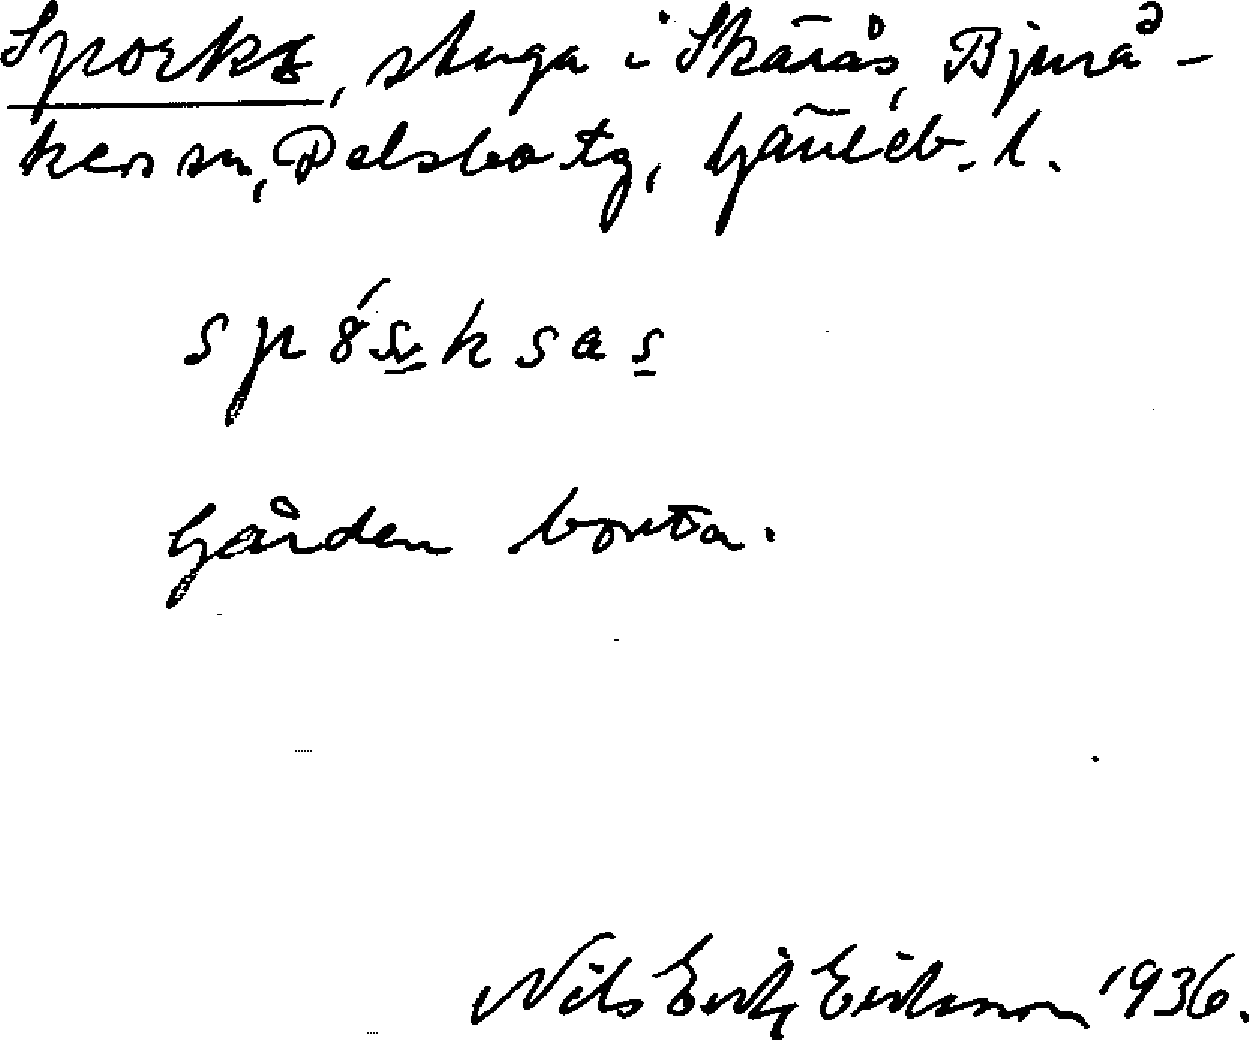 Sporks, stuga i Skärås, Bjurå-
kers sn, Delsbo tg, Gävleb. l.
Gården borta.
Nils Erik Eriksson 1936.